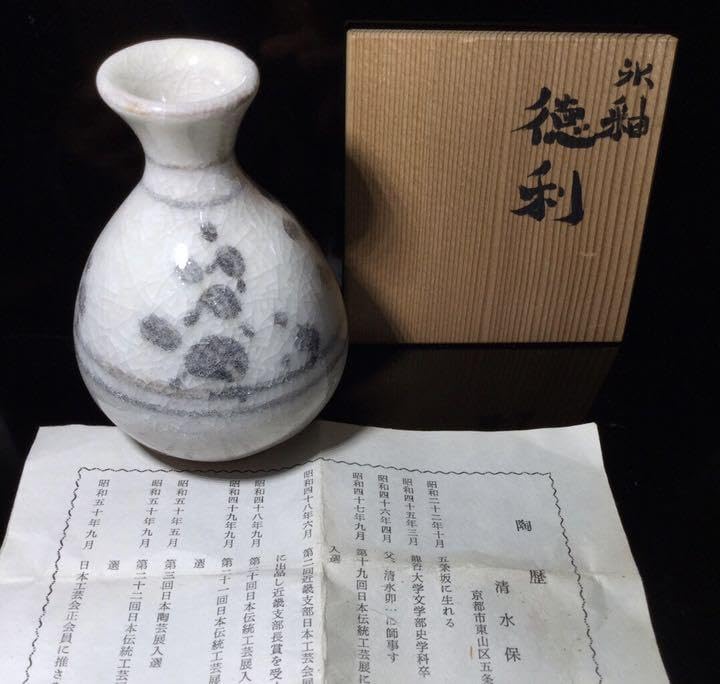 氷釉
徳利
陶歴
清水保
京都市東山区五条
昭和二十二年十月 五条坂に生れる
昭和四十五年三月 龍谷大学文学部史学科卒
昭和四十六年四月 父、清水卯一に師事す
昭和四十七年九月 第十九回日本伝統工芸展に
入選
昭和四十八年六月 第二回近畿支部日本工芸会展
に出品し近畿支部長賞を受
昭和四十八年九月 第二十回日本伝統工芸展入
選
昭和四十九年九月 第二十一回日本伝統工芸
選
昭和五十年五月 第三回日本陶芸展入選
昭和五十年九月 第二十二回日本伝統工芸
選
昭和五十年九月 日本工芸会正会員に推さ